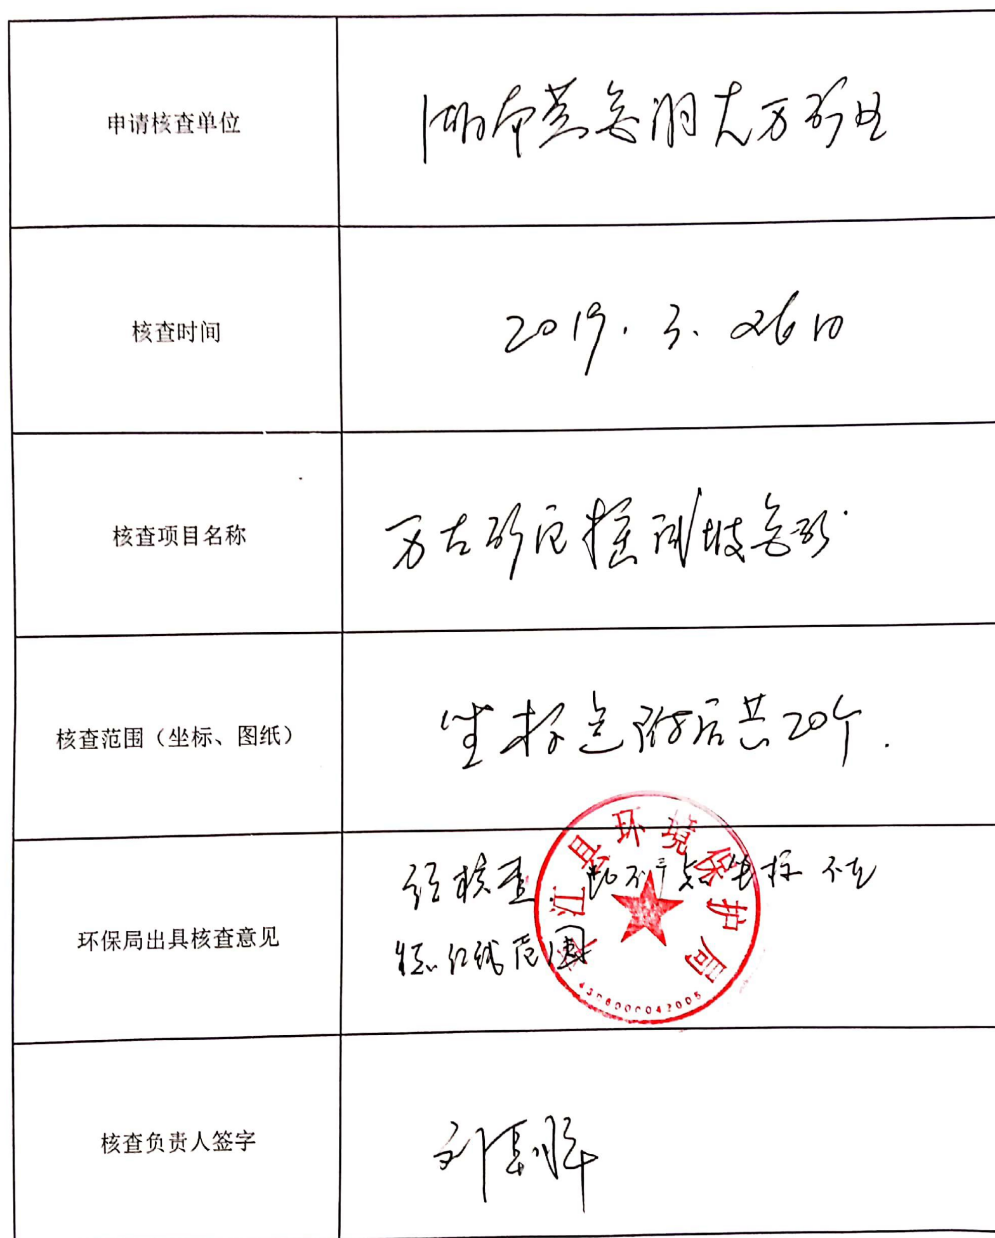 申请核查单位
湖南黄金洞大万矿业
核查时间
2019.3.26日
核查项目名称
万古矿区摇钱坡金矿
核查范围（坐标、图纸）
坐标点附后共20个.
环保局出具核查意见
经核查. 坐标 不在
红线范围
江县环境保护局
4306000042005
核查负责人签字
刘